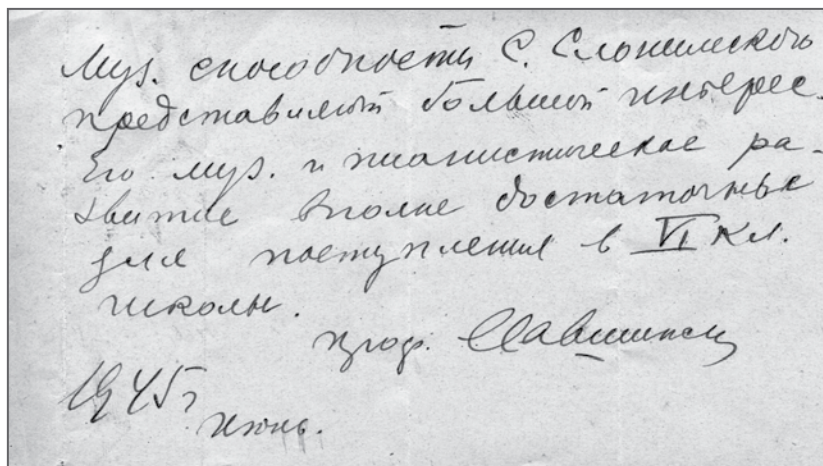 Муз. способности С. Слонимского
представляют большой интерес.
Его муз. и пианистическое ра-
звитие вполне достаточные
для поступления в VI кл.
школы.
проф. Савшинск
1945 г
июнь.